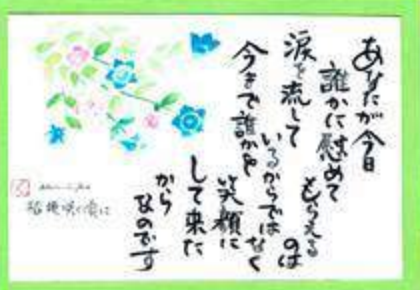 あなたが今日
誰かに慰めて
もらえるのは
涙を流して
いるからではなく
今まで誰かを
笑顔に
して来た
から
なのです